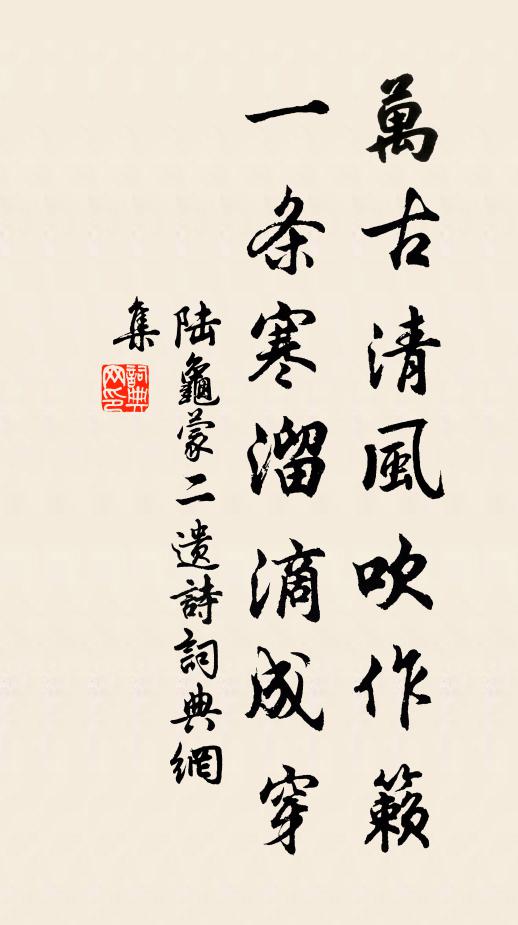 萬古清風吹作籟
一条寒溜滴成穿
陆龜蒙二遺詩詞典網
集
詞典網印